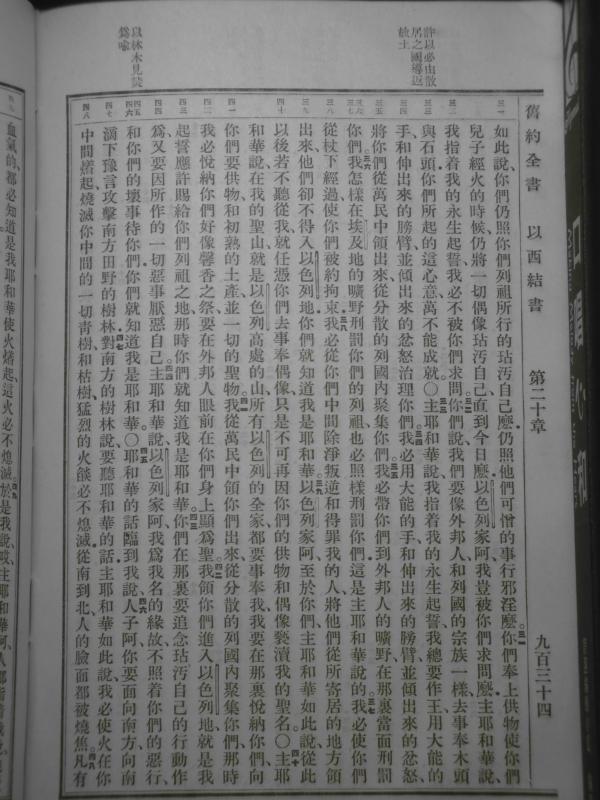 舊約全書　以西結書　第二十章　九百三十四
許以必由散
居之國導返
故土
以林木見焚
爲喻
如此說、你們仍照你們列祖所行的玷污自己麼、仍照他們可憎的事行邪淫麼。你們奉上供物使你們
兒子經火的時候、仍將一切偶像玷污自己、直到今日麼、以色列家阿、我豈被你們求問麼、主耶和華說、
我指着我的永生起誓、我必不被你們求問。你們說、我們要像外邦人、和列國的宗族一樣、去事奉木頭
與石頭、你們所起的這心意、萬不能成就。○主耶和華說、我指着我的永生起誓、我總要作王、用大能的
手、和伸出來的膀臂、並傾出來的忿怒治理你們。我必用大能的手、和伸出來的膀臂、並傾出來的忿怒、
將你們從萬民中領出來、從分散的列國內聚集你們。我必帶你們到外邦人的曠野、在那裏當面刑罰
你們。我怎樣在埃及地的曠野刑罰你們的列祖、也必照樣刑罰你們、這是主耶和華說的。我必使你們
從杖下經過、使你們被約拘束。我必從你們中間除淨叛逆和得罪我的人、將他們從所寄居的地方領
出來、他們卻不得入以色列地、你們就知道我是耶和華。以色列家阿、至於你們、主耶和華如此說、從此
以後若不聽從我、就任憑你們去事奉偶像、只是不可再因你們的供物和偶像褻瀆我的聖名。○主耶
和華說、在我的聖山、就是以色列高處的山、所有以色列的全家、都要事奉我、我要在那裏悅納你們、向
你們要供物、和初熟的土產、並一切的聖物。我從萬民中領你們出來、從分散的列國內聚集你們、那時
我必悅納你們、好像馨香之祭、要在外邦人眼前、在你們身上顯爲聖。我領你們進入以色列地、就是我
起誓應許賜給你們列祖之地、那時你們就知道我是耶和華。你們在那裏要追念玷污自己的行動作
爲、又要因所作的一切惡事厭惡自己。主耶和華說、以色列家阿、我爲我名的緣故、不照着你們的惡行、
和你們的壞事待你們、你們就知道我是耶和華。○耶和華的話臨到我說、人子阿、你要面向南方、向南
滴下豫言、攻擊南方田野的樹林、對南方的樹林說、要聽耶和華的話、主耶和華如此說、我必使火在你
中間燃起、燒滅你中間的一切青樹和枯樹、猛烈的火燄必不熄滅、從南到北、人的臉面都被燒焦。凡有
血氣的、都必知道是我耶和華使火燒起、這火必不熄滅。於是我說、哎、主耶和華阿、人都指着我說
口唱心和